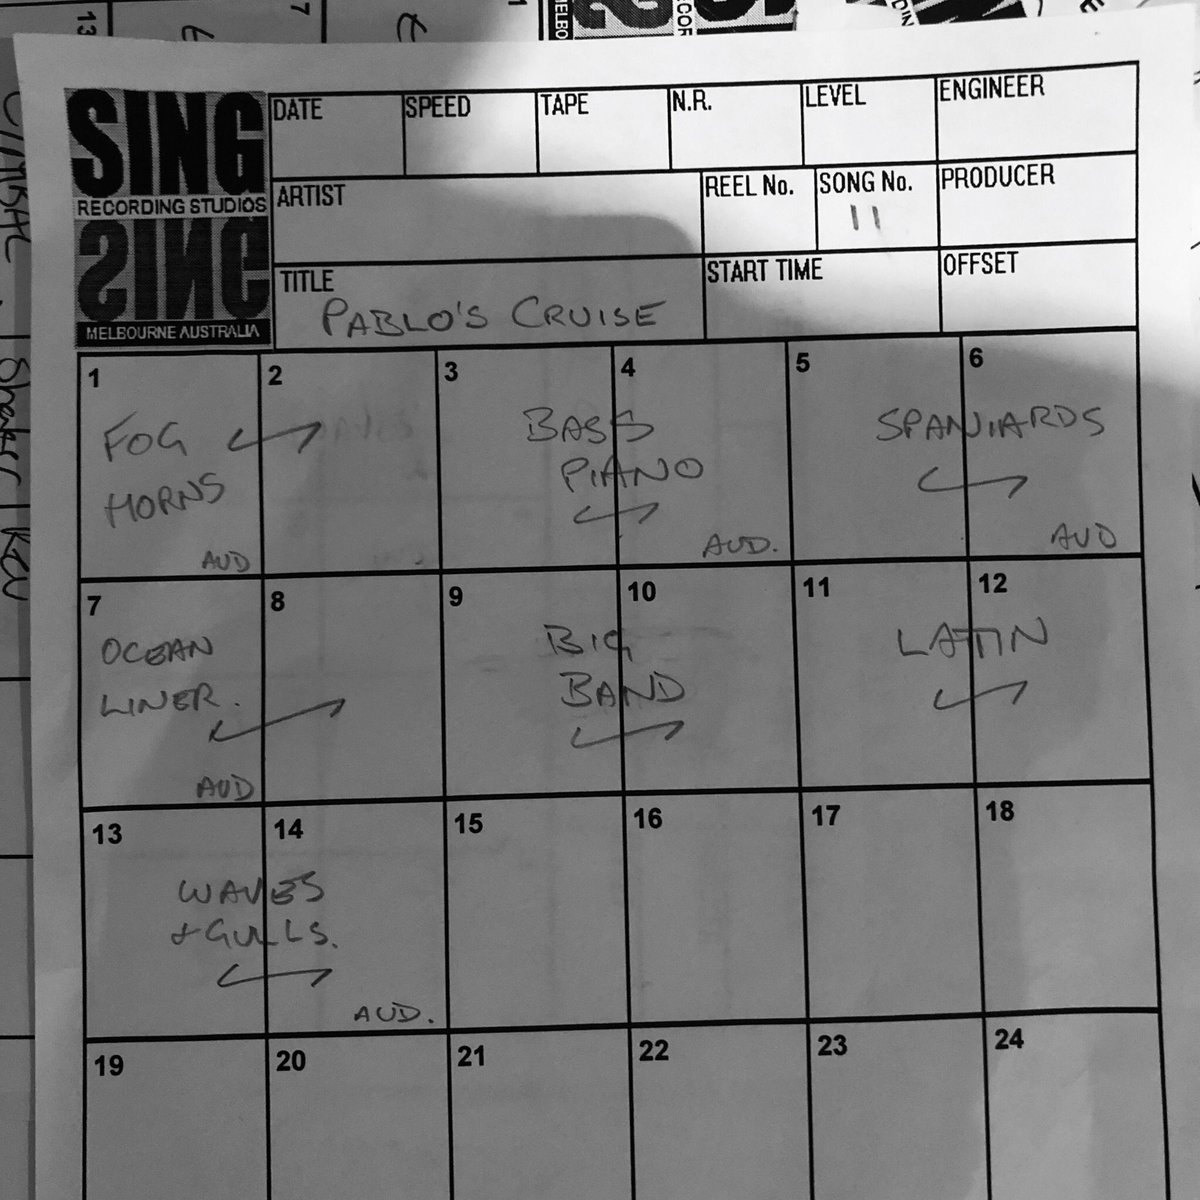 SING
RECORDING STUDIOS
SING
MELBOURNE AUSTRALIA
DATE SPEED TAPE N.R. LEVEL ENGINEER
ARTIST REEL No. SONG No. PRODUCER
11
TITLE START TIME OFFSET
PABLO'S CRUISE
1 2 3 4 5 6
FOG BASS SPANIARDS
HORNS PIANO
AUD AUD. AUD
7 8 9 10 11 12
OCEAN BIG LATIN
LINER. BAND
AUD
13 14 15 16 17 18
WAVES
+ GULLS.
AUD.
19 20 21 22 23 24
13
7